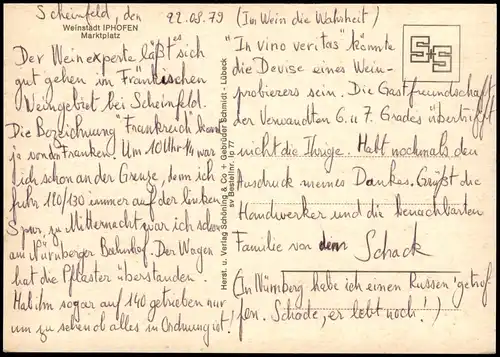 Scheinfeld, den 22.08.79
Weinstadt IPHOFEN
Marktplatz
Der Weinexperte läßt "es" sich
gut gehen im Fränkischen
Weingebiet bei Scheinfeld.
Die Bezeichnung "Frankreich" kommt
ja von den Franken! Um 10 Uhr 1/4 war
ich schon an der Grenze, denn ich
fuhr 120/130 immer auf der linken
Spur, zu Mitternacht war ich schon
am Nürnberger Bahnhof. Der Wagen
hat die Pflaster überstanden.
Hab ihn sogar auf 140 getrieben nur
um zu sehen ob alles in Ordnung ist!
Herst. u. Verlag Schöning & Co + Gebrüder Schmidt - Lübeck
sv Bestellnr. Io 77
(Im Wein die Wahrheit)
"In vino veritas" könnte
die Devise eines Wein-
probierers sein. Die Gastfreundschaft
der Verwandten 6. u 7. Grades übertrifft
nicht die Ihrige. Habt nochmals den
Ausdruck meines Dankes. Grüßt die
Handwerker und die benachbarten
Familie von dem Schack
(In Nürnberg habe ich einen Russen getrof-
fen. Schade, er lebt noch!)
S+S